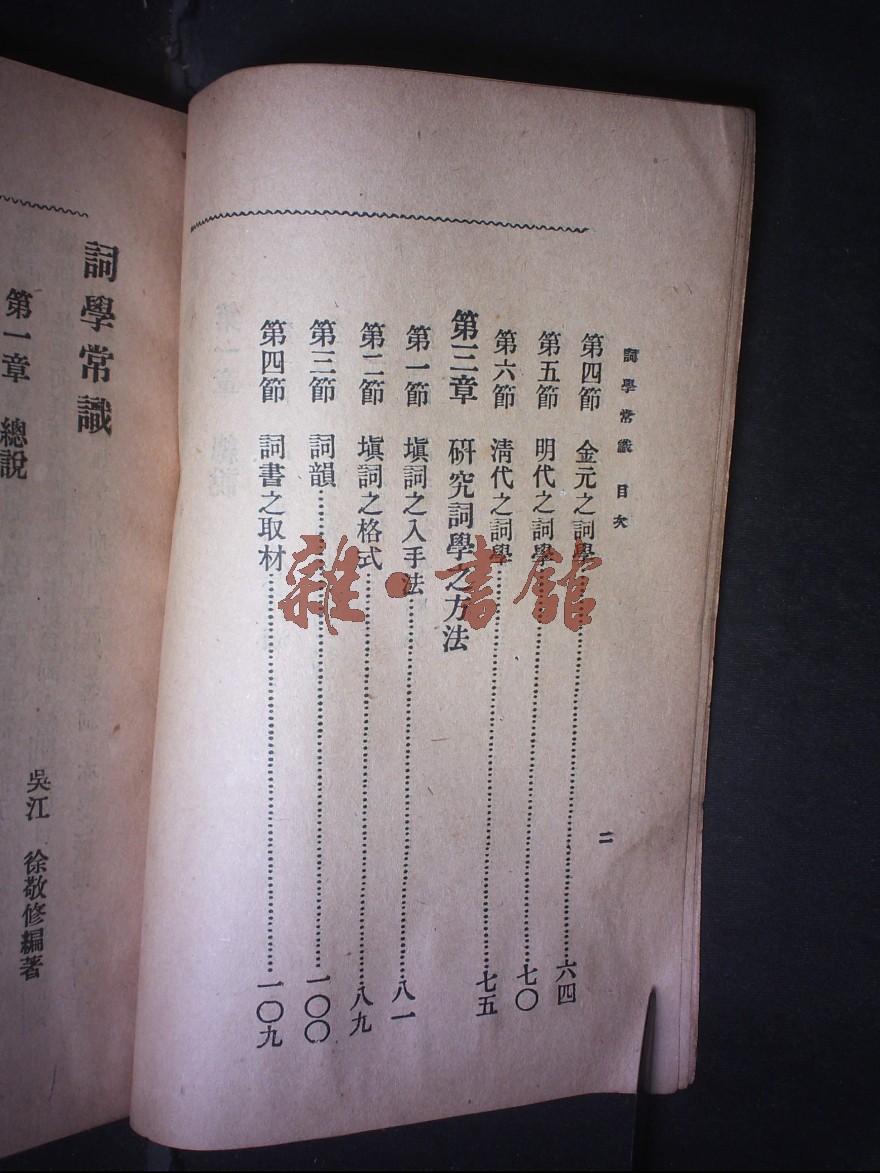 詞學常識 目次
二
第四節 金元之詞學……六四
第五節 明代之詞學……七〇
第六節 清代之詞學……七五
第三章 研究詞學之方法
第一節 塡詞之入手法……八一
第二節 塡詞之格式……八九
第三節 詞韻……一〇〇
第四節 詞書之取材……一〇九
詞學常識
吳江 徐敬修編著
第一章 總說
雜·書館